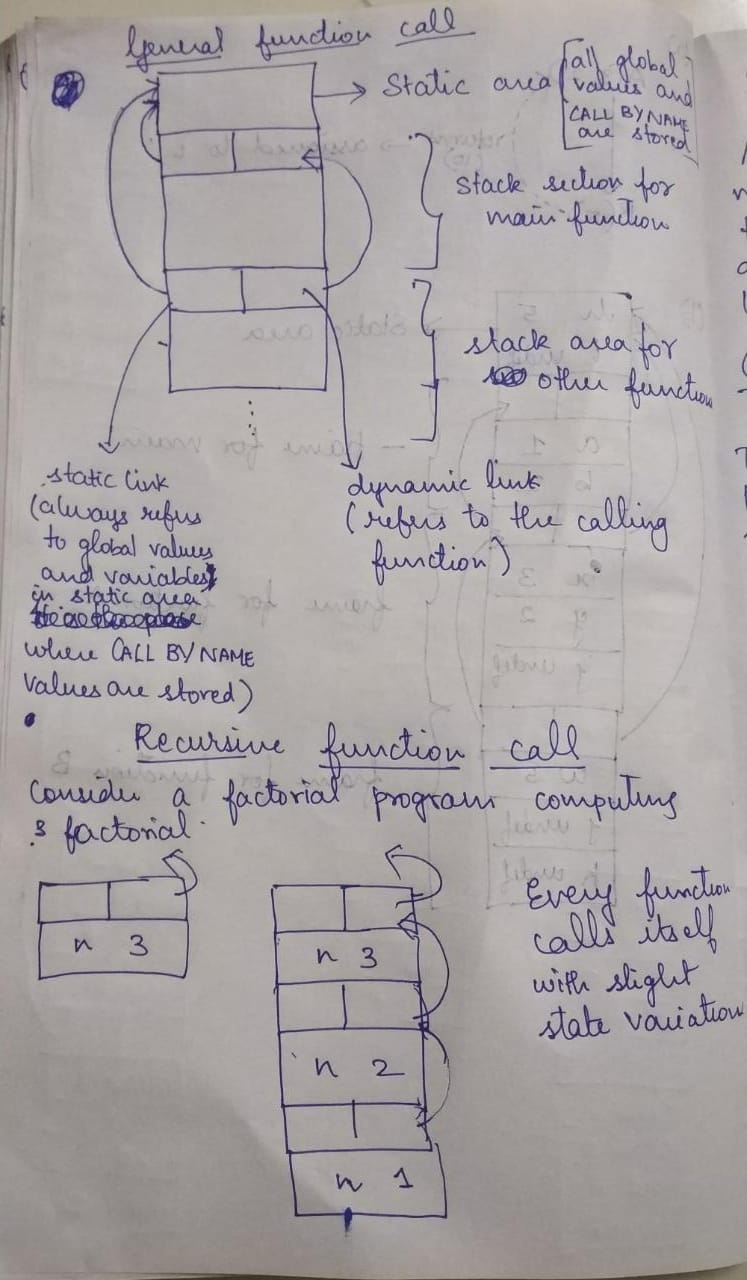 General function call
Static area
all global
values and
CALL BY NAME
are stored
stack section for
main function
stack area for
other function
static link
(always refers
to global values
and variables
in static area
where CALL BY NAME
values are stored)
dynamic link
(refers to the calling
function)
Recursive function call
Consider a factorial program computing
3 factorial.
n 3
n 3
n 2
n 1
Every function
calls itself
with slight
state variation